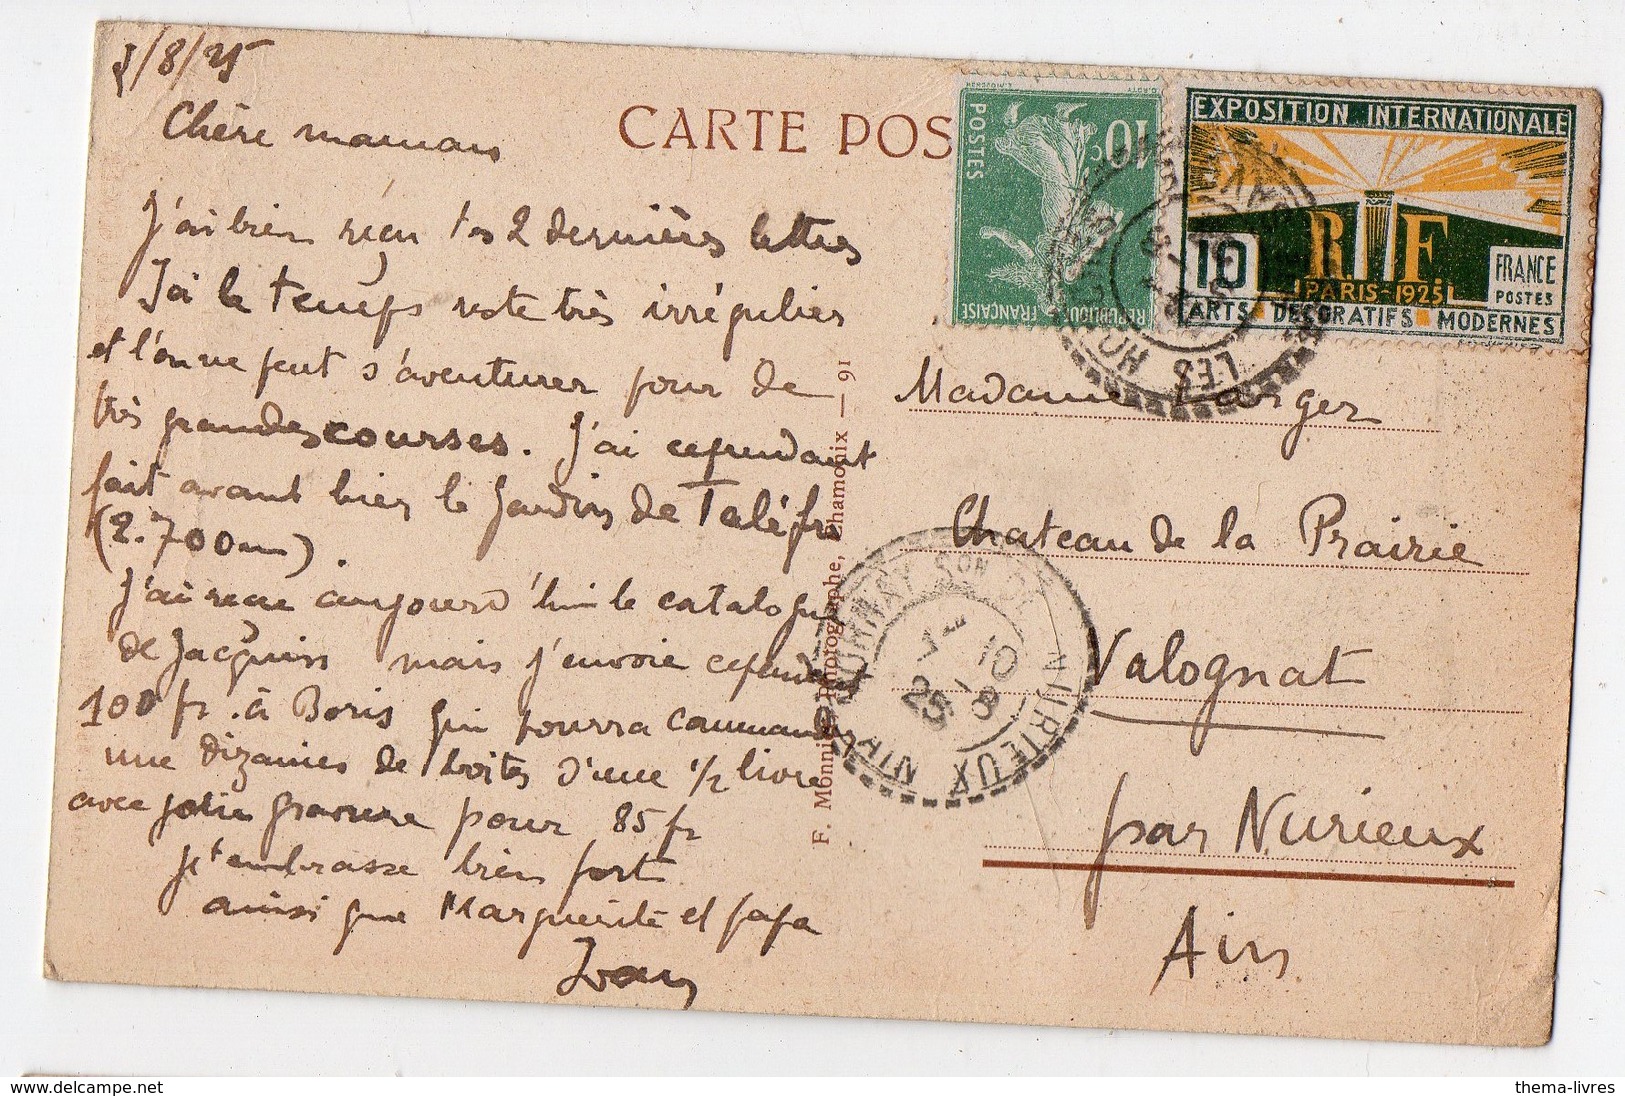 /8/25
Chère maman
J'ai bien reçu tes 2 dernières lettres
J'ai le temps reste très irrégulier
et l'on ne peut s'aventurer pour de
très grandes courses. J'ai cependant
fait avant hier le Jardin de Taléfre
(2.700 m).
J'ai reçu aujourd'hui le catalogue
de Jacquin mais j'envoie cependant
100 fr. à Boris qui pourra commander
une dizaine de boites d'une 1/2 livre
avec jolie gravure pour 85 fr
Je t'embrasse bien fort
ainsi que Marguerite et papa
Ivan
CARTE POS
F. Monnier, Photographe, Chamonix — 91
POSTES
10c
REPUBLIQUE FRANÇAISE
EXPOSITION INTERNATIONALE
R F
10
FRANCE
POSTES
PARIS-1925
ARTS DECORATIFS MODERNES
LES HOUCHES
Madame Larger
Chateau de la Prairie
Valognat
par Nurieux
Ain
NURIEUX
10 -8
25
AIN
thema-livres
delcampe.net